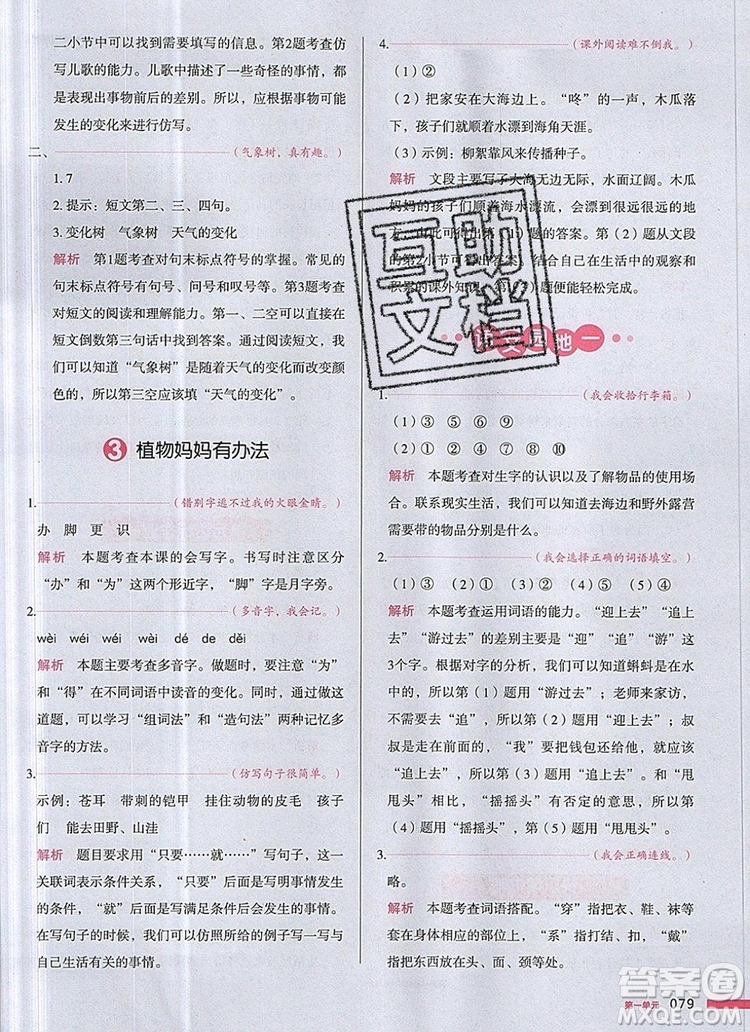 二小节中可以找到需要填写的信息。第2题考查仿
写儿歌的能力。儿歌中描述了一些奇怪的事情，就
是表现出事物前后的差别。所以，应根据事物可能
发生的变化来进行仿写。
二、（气象树，真有趣。）
1. 7
2. 提示：短文第二、三、四句。
3. 变化树 气象树 天气的变化
解析 第1题考查对句末标点符号的掌握。常见的
句末标点符号有句号、问号和叹号等。第3题考查
对短文的阅读和理解能力。第一、二空可以直接在
短文倒数第三句话中找到答案。通过阅读短文，我
们了解到，“气象树”是因为天气的改变而改变颜
色的。所以第三空应该填“天气的变化”。
3 植物妈妈有办法
1.（错别字逃不过我的火眼金睛。）
办 脚 更 识
解析 本题考查本课的会写字。书写时注意区分
“办”和“为”这两个形近字，“脚”字是月字旁。
2.（多音字，我会记。）
wèi wéi wéi wèi dé de děi
解析 本题主要考查多音字。做题时，要注意“为”
和“得”在不同词语中读音的变化。同时，我们还
可以学习“组词法”和“造句法”两种记忆多音
字的方法。
3.（仿写句子很简单。）
示例：苍耳 带刺的铠甲 挂住动物的皮毛 孩子
们 能去田野、山洼
解析 题目要求用“只要……就……”写句子，这一
关联词表示条件关系，“只要”后面是写明事情发
生的条件，“就”后面是写满足条件所发生的事情。
在写句子的时候，可以仿照题中的例子写一写与
自己有关的或者自己喜欢的事情。
4.（课外阅读难不倒我。）
（1）②
（2）把家安在大海边上。“咚”的一声，木瓜落
下，孩子们会顺着海水漂到海角天涯。
（3）示例：柳絮靠风来传播种子。
解析 文段写了大海无边无际，水面辽阔。木瓜
妈妈的孩子们顺着海水漂流，会漂到很远的地
方，由此可得出第（1）题的答案。第（2）题从文段
的第2小节可以找到答案。结合自己在生活中的观察和
积累的课外知识，第（3）题便能轻松完成。
互助
文档
语文园地一
1.（我会收拾行李箱。）
（1）① ③ ⑤ ⑥ ⑨
（2）② ④ ⑦ ⑧ ⑩
解析 本题考查对生字的认识以及了解物品的使用场
合。联系现实生活，我们可以知道去海边和野外露营
需要带的物品分别是什么。
2.（我会选择正确的词语填空。）
（1）③（2）①（3）②（4）⑤（5）④
解析 本题考查运用词语的能力。“迎上去”“追上
去”“游过去”的差别主要是“迎”“追”“游”这
3个字。根据对字的分析，我们可以知道蝌蚪是在水
中的，所以第（1）题用“游过去”；老师来家访，
不需要去“追”，所以第（2）题用“迎上去”；叔
叔是走在前面的，“我”要把钱包还给他，就应该
“追上去”，所以第（3）题用“追上去”。“摇摇
头”和“甩甩头”相比，“摇摇头”有否定的意思，所以第
（4）题用“摇摇头”，第（5）题用“甩甩头”。
3.（我会正确连线。）
略。
解析 本题考查词语搭配。“穿”指把衣、鞋、袜等
套在身体相应部位，“系”指打结、扣，“戴”
指把东西放在头、面、颈等处。
第一单元 079
答案圈
MXQE.COM